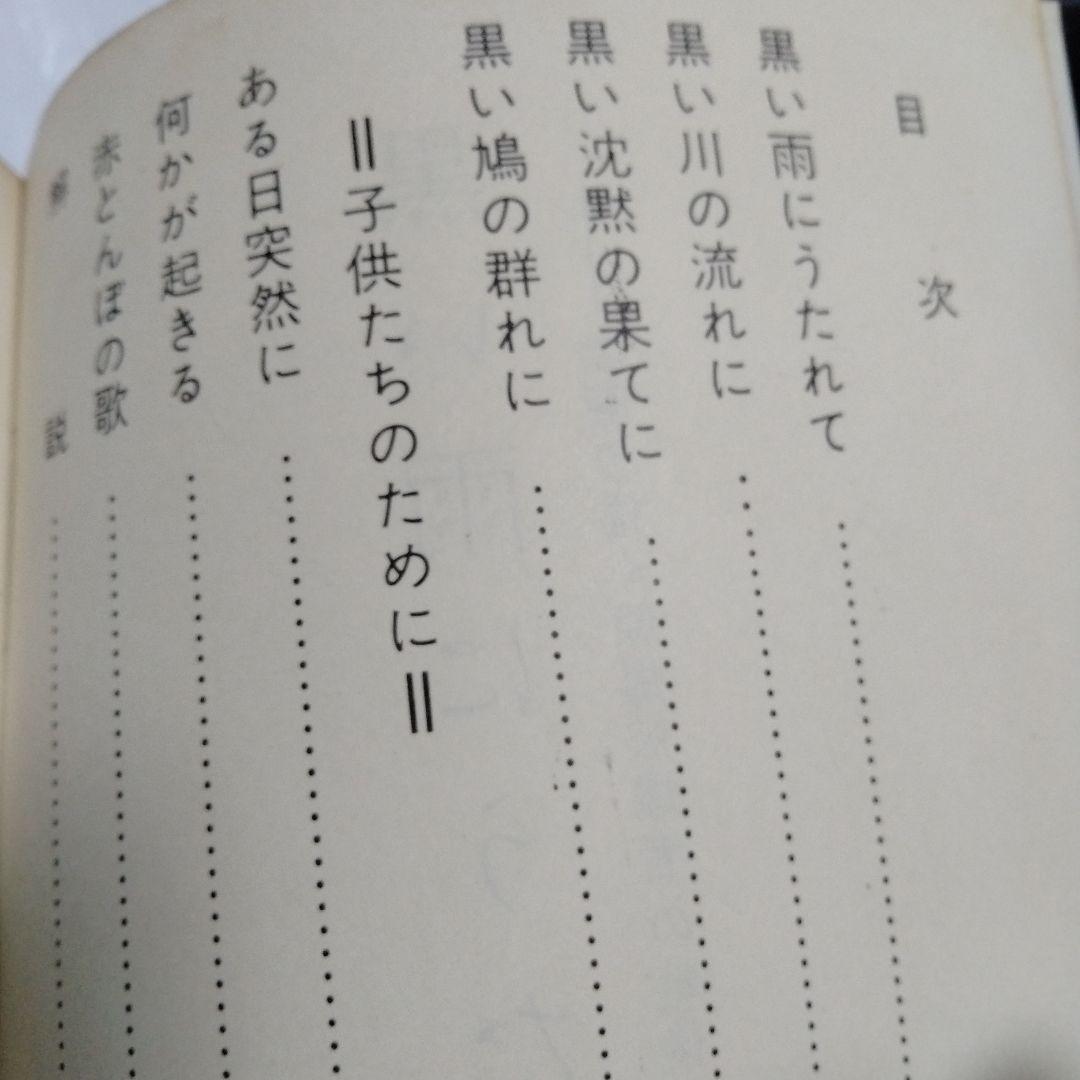 目次
黒い雨にうたれて
黒い川の流れに
黒い沈黙の果てに
黒い鳩の群れに
＝子供たちのために＝
ある日突然に
何かが起きる
赤とんぼの歌
解説